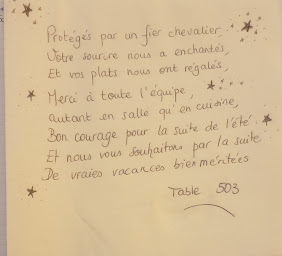 Protégés par un fier chevalier,
Votre sourire nous a enchantés,
Et vos plats nous ont régalés,
Merci à toute l'équipe,
autant en salle qu'en cuisine,
Bon courage pour la suite de l'été
Et nous vous souhaitons par la suite
De vraies vacances bien méritées
Table 503